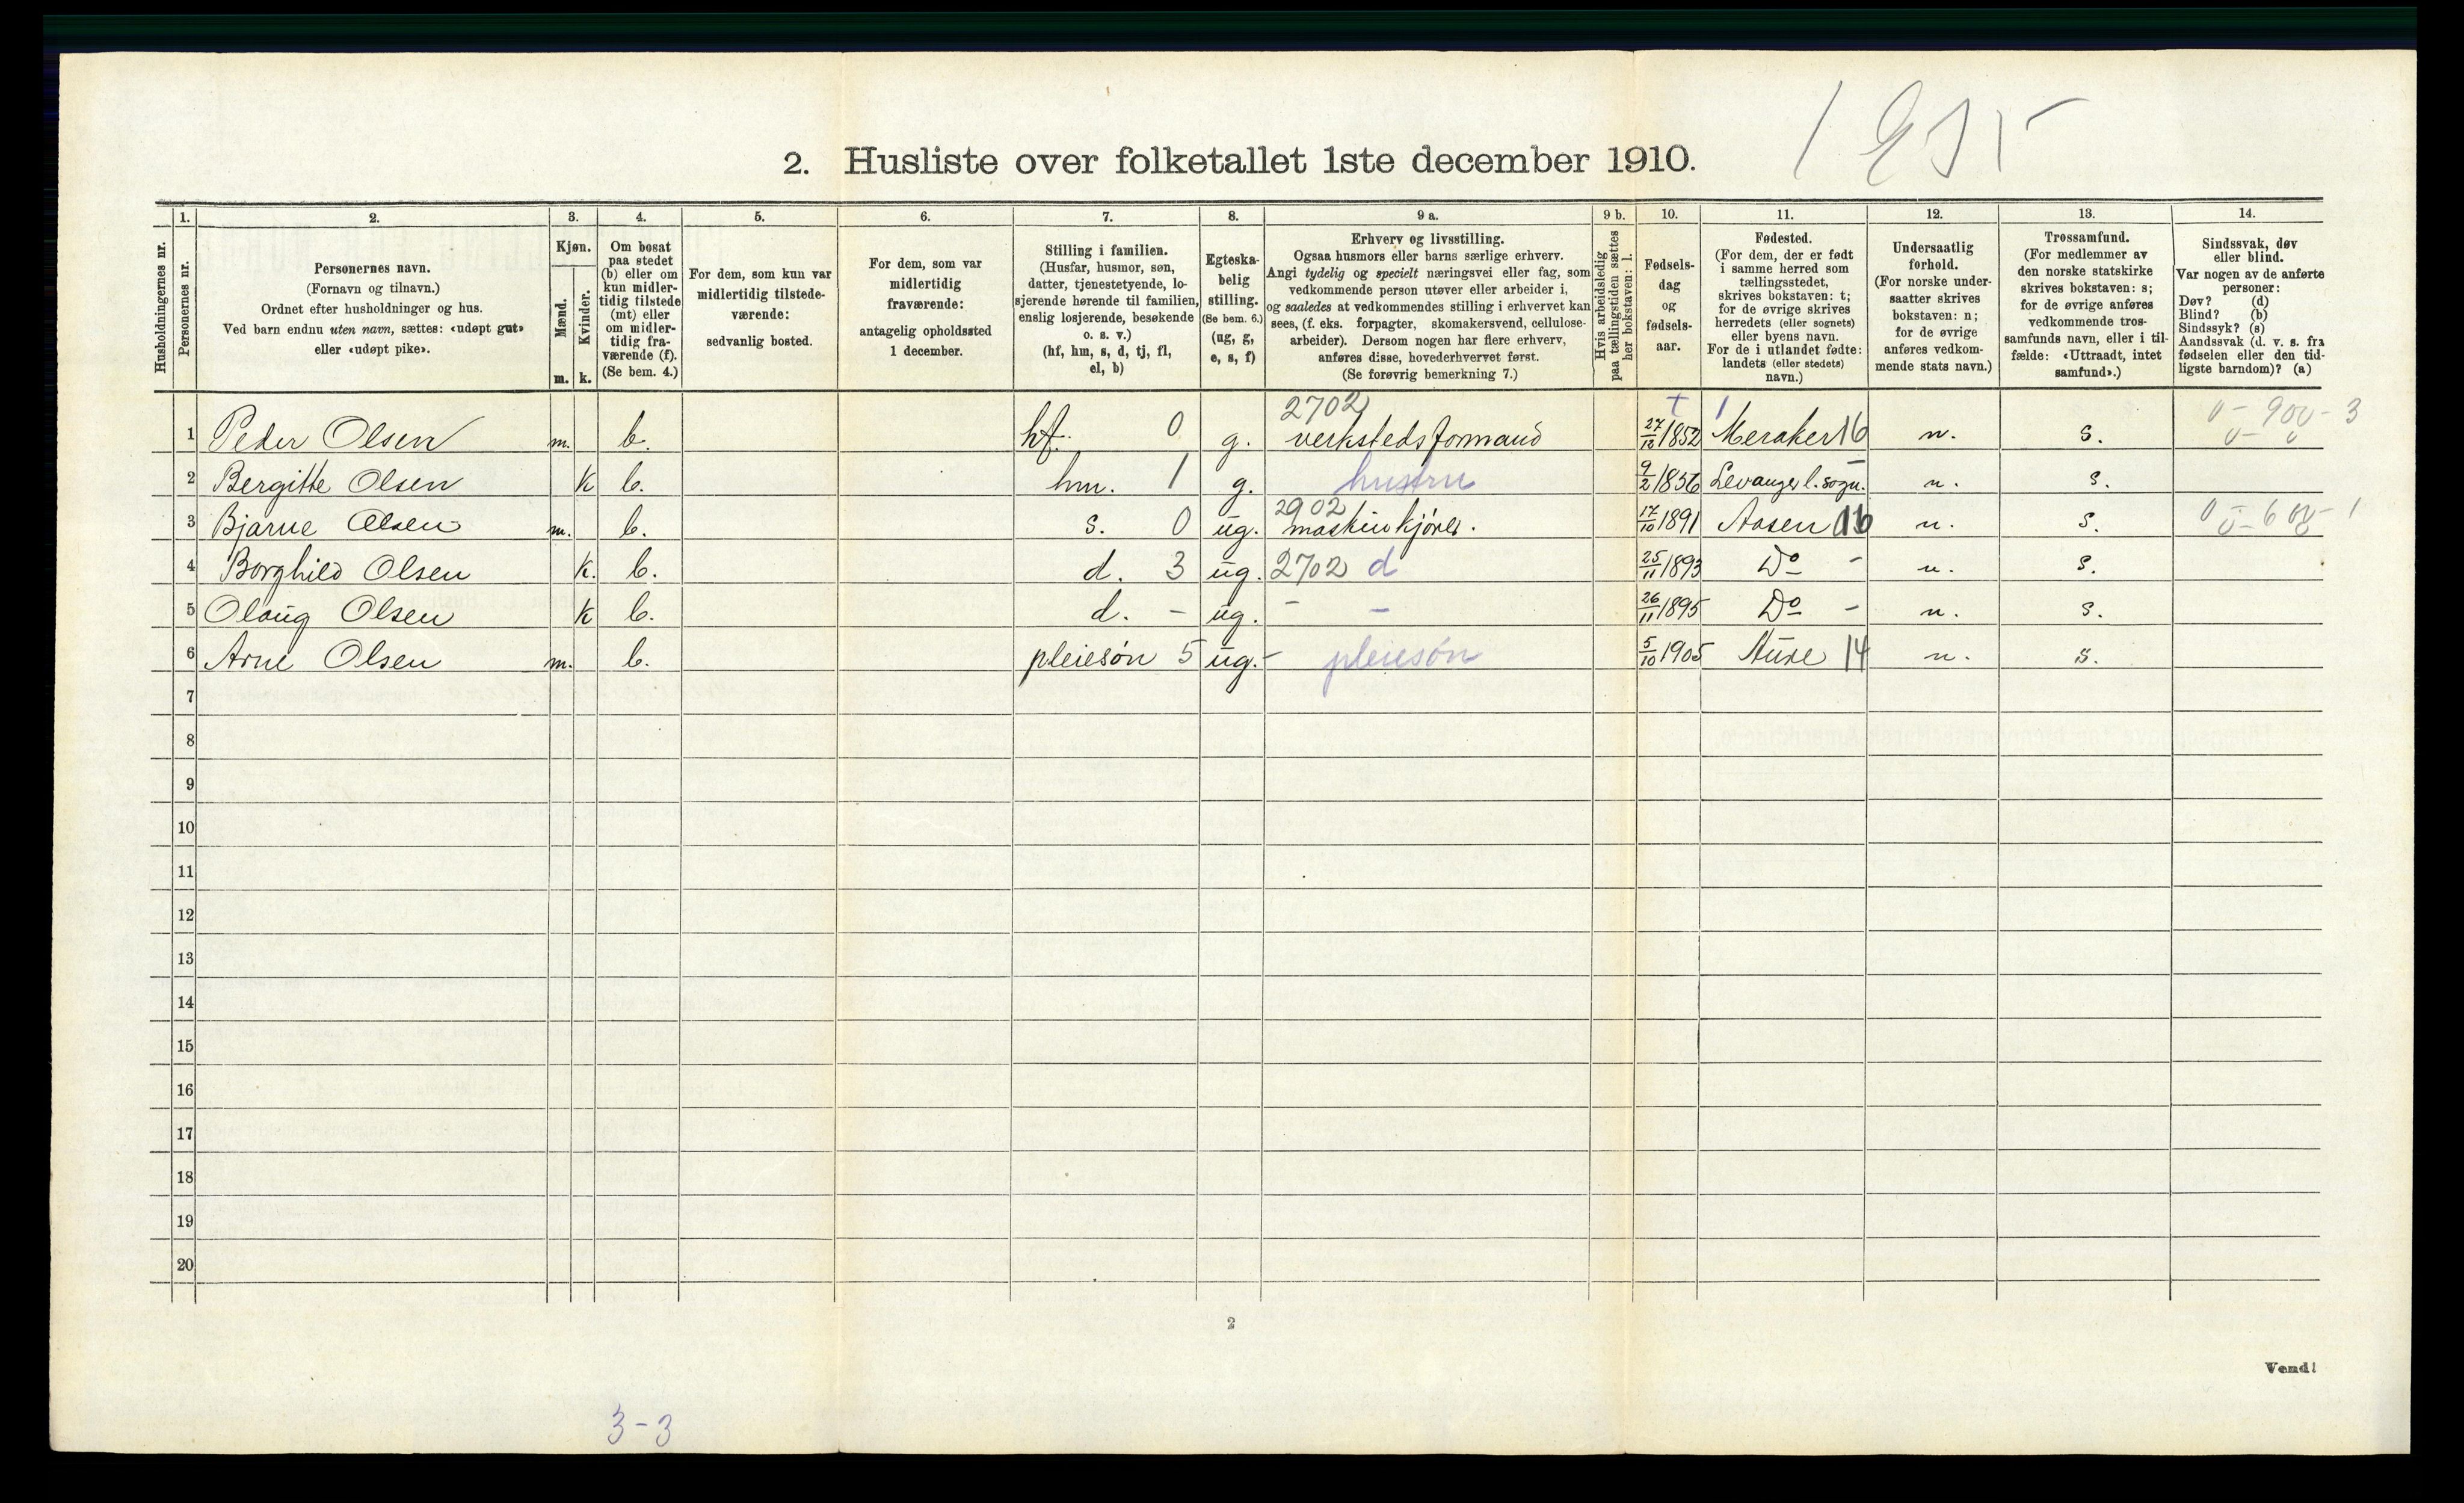 2. Husliste over folketallet 1ste december 1910.
Husholdningernes nr.
1. Personernes nr.
2. Personernes navn.
(Fornavn og tilnavn.)
Ordnet efter husholdninger og hus.
Ved barn endnu uten navn, sættes: «udøpt gut»
eller «udøpt pike».
3. Kjøn.
Mænd. Kvinder.
m. k.
4. Om bosat
paa stedet
(b) eller om
kun midler-
tidig tilstede
(mt) eller
om midler-
tidig fra-
værende (f).
(Se bem. 4.)
5. For dem, som kun var
midlertidig tilstede-
værende:
sedvanlig bosted.
6. For dem, som var
midlertidig
fraværende:
antagelig opholdssted
1 december.
7. Stilling i familien.
(Husfar, husmor, søn,
datter, tjenestetyende, lo-
sjerende hørende til familien,
enslig losjerende, besøkende
o. s. v.)
(hf, hm, s, d, tj, fl,
el, b)
8. Egteska-
belig
stilling.
(Se bem. 6.)
(ug, g,
e, s, f)
9 a. Erhverv og livsstilling.
Ogsaa husmors eller barns særlige erhverv.
Angi tydelig og specielt næringsvei eller fag, som
vedkommende person utøver eller arbeider i,
og saaledes at vedkommendes stilling i erhvervet kan
sees, (f. eks. forpagter, skomakersvend, cellulose-
arbeider). Dersom nogen har flere erhverv,
anføres disse, hovederhvervet først.
(Se forøvrig bemerkning 7.)
9 b. Hvis arbeidsledig
paa tællingstiden sættes
her bokstaven: l.
10. Fødsels-
dag
og
fødsels-
aar.
11. Fødested.
(For dem, der er født
i samme herred som
tællingsstedet,
skrives bokstaven: t;
for de øvrige skrives
herredets (eller sognets)
eller byens navn.
For de i utlandet fødte:
landets (eller stedets)
navn.)
12. Undersaatlig
forhold.
(For norske under-
saatter skrives
bokstaven: n;
for de øvrige
anføres vedkom-
mende stats navn.)
13. Trossamfund.
(For medlemmer av
den norske statskirke
skrives bokstaven: s;
for de øvrige anføres
vedkommende tros-
samfunds navn, eller i til-
fælde: «Uttraadt, intet
samfund».)
14. Sindssvak, døv
eller blind.
Var nogen av de anførte
personer:
Døv? (d)
Blind? (b)
Sindssyk? (s)
Aandssvak (d. v. s. fra
fødselen eller den tid-
ligste barndom)? (a)
2702
1 Peder Olsen m. b. hf. 0 g. verkstedsformand 27/12 1852 Meraker 16 n. s.
2 Bergitte Olsen k b. hm. 1 g. hustru 9/2 1856 Levanger l. sogn. n. s.
2902
3 Bjarne Olsen m. b. s. 0 ug. maskinkjører. 17/10 1891 Aasen 16 n. s.
4 Borghild Olsen k. b. d. 3 ug. 2702 d 25/11 1893 Do - n. s.
5 Olaug Olsen k b. d. - ug. - - 26/11 1895 Do - n. s.
6 Arne Olsen m. b. pleiesøn 5 ug. - pleiesøn 5/10 1905 Aure 14 n. s.
7
8
9
10
11
12
13
14
15
16
17
18
19
20
2
Vend!
3-3